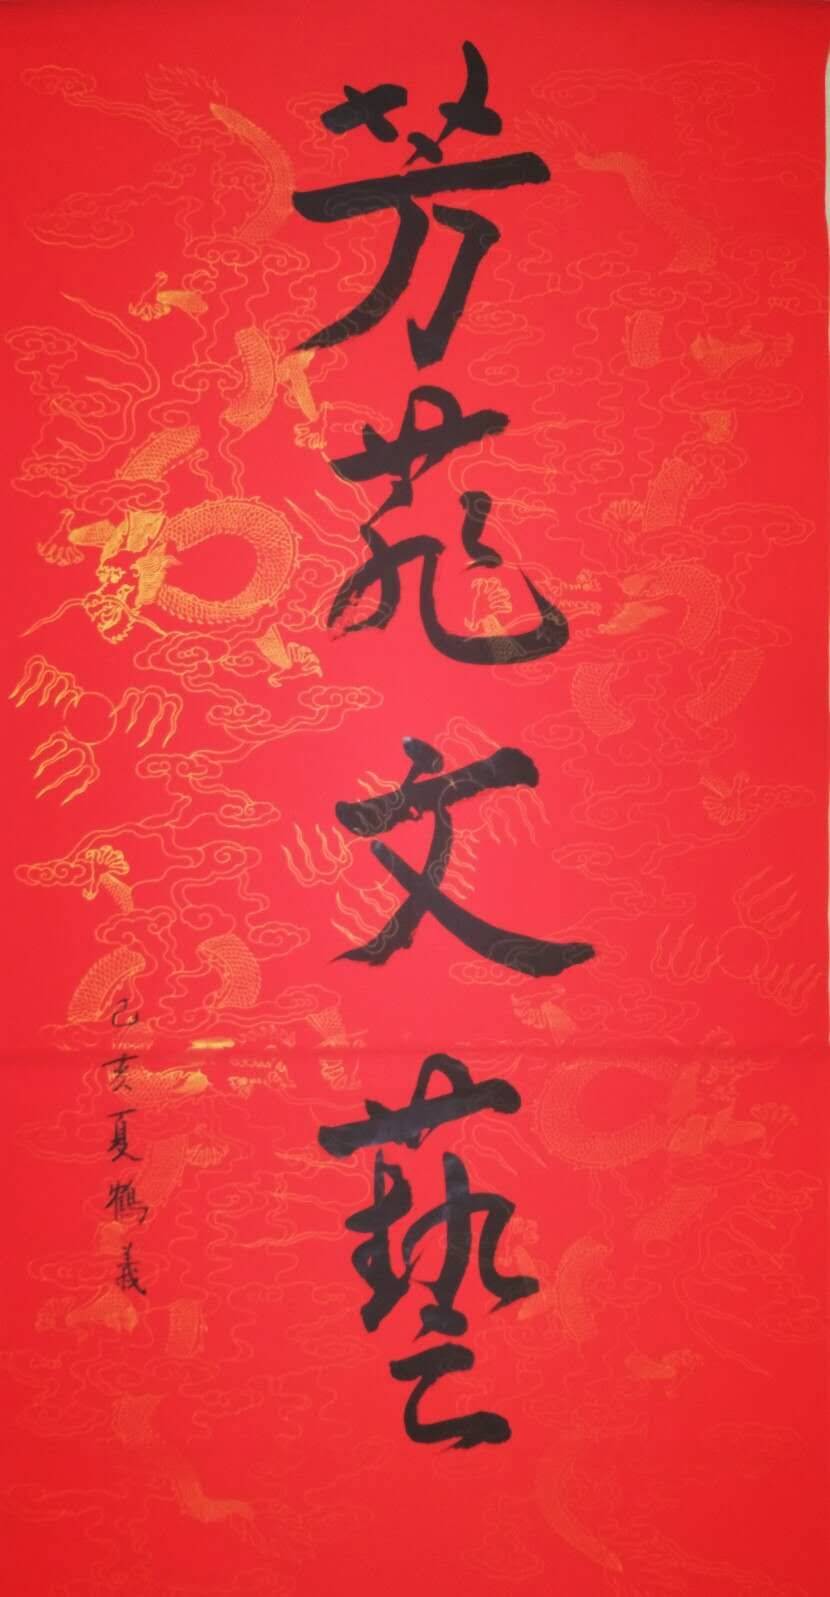 芳苑文藝
己亥夏鶴義